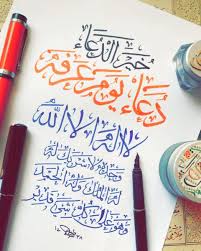 خير الدعاء
دعاء يوم عرفة
لا إله إلا الله
وحده لا شريك له
له الملك وله الحمد
وهو على كل شيء قدير